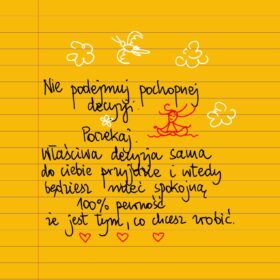 Nie podejmuj pochopnej
decyzji.
Poczekaj.
Właściwa decyzja sama
do ciebie przyjdzie i wtedy
będziesz mieć spokojną
100% pewność
że jest tym, co chcesz zrobić.